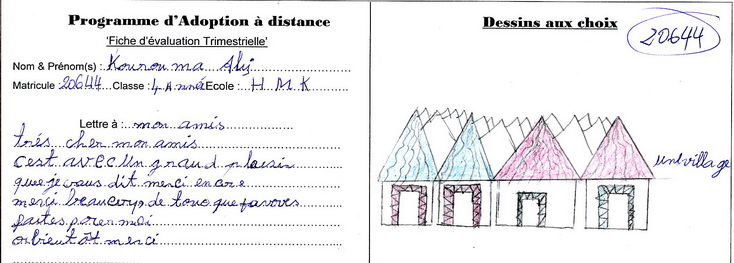 Programme d'Adoption à distance
'Fiche d'évaluation Trimestrielle'
Nom & Prénom(s) : Kourouma Aly
Matricule : 20644 Classe : 4 Anné Ecole : H M K
Lettre à : mon amis
trés cher mon amis
c'est avec un grand plaisir
que je vous dit merci encore
merci beaucoup de tous que favoves
faites pour moi
o bientôt merci
Dessins aux choix
20644
un village